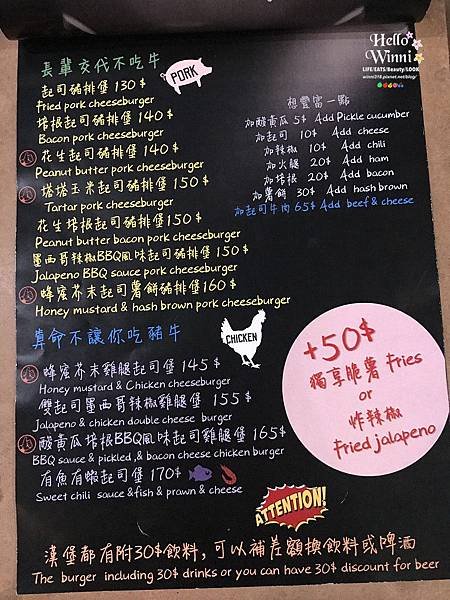 Hello
Winni
LIFE/EATS/Beauty/LOOK
winni318.pixnet.net/blog/
長輩交代不吃牛
PORK
起司豬排堡 130$
Fried pork cheeseburger
培根起司豬排堡 140$
Bacon pork cheeseburger
花生起司豬排堡 140$
Peanut butter pork cheeseburger
塔塔玉米起司豬排堡 150$
Tartar pork cheeseburger
花生培根起司豬排堡150$
Peanut butter bacon pork cheeseburger
墨西哥辣椒BBQ風味起司豬排堡 150$
Jalapeno BBQ sauce pork cheeseburger
蜂蜜芥末起司薯餅豬排堡160$
Honey mustard & hash brown pork cheeseburger
想豐富一點
加酸黃瓜 5$ Add Pickle cucumber
加起司 10$ Add cheese
加辣椒 10$ Add chili
加火腿 20$ Add ham
加培根 20$ Add bacon
加薯餅 30$ Add hash brown
加起司牛肉 65$ Add beef & cheese
算命不讓你吃豬牛
CHICKEN
蜂蜜芥末雞腿起司堡 145$
Honey mustard & Chicken cheeseburger
雙起司墨西哥辣椒雞腿堡 155$
Jalapeno & chicken double cheese burger
酸黃瓜培根BBQ風味起司雞腿堡 165$
BBQ sauce & pickled & bacon cheese chicken burger
有魚有蝦起司堡 170$
Sweet chili sauce &fish & prawn & cheese
+50$
獨享脆薯 Fries
or
炸辣椒
Fried jalapeno
ATTENTION!
漢堡都有附30$飲料，可以補差額換飲料或啤酒
The burger including 30$ drinks or you can have 30$ discount for beer